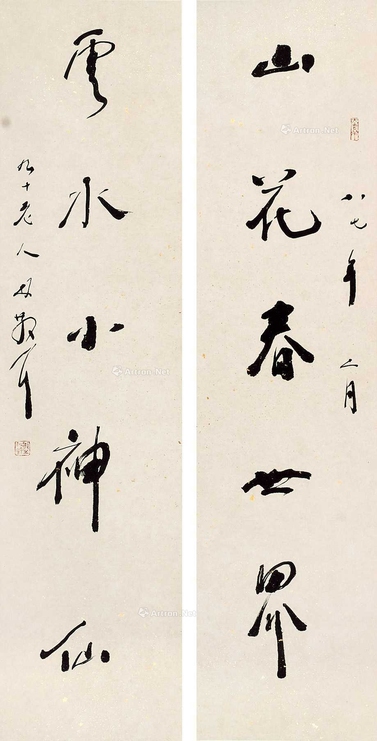 山花春世界
八七年二月
雲水小神仙
九十老人林散耳
Artron.Net
Artron.Net
Artron.Net
Artron.Net